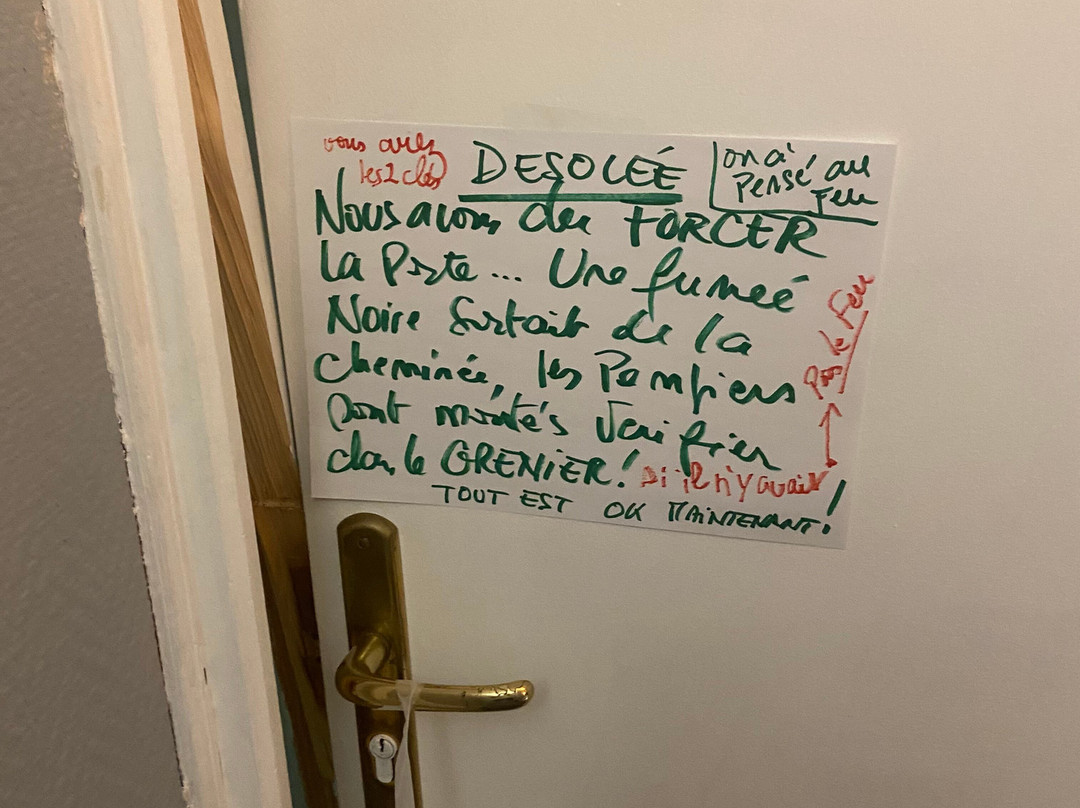 vous aviez
les 2 clés
DESOLEÉ
on a
Pensé au
Feu
Nous avons du FORCER
la Porte... Une fumeé
Noire Sortait de la
cheminée, les Pompiers
sont montés Vérifier
dans le GRENIER! Si il n'y avait
Pas le Feu
TOUT EST OK MAINTENANT!